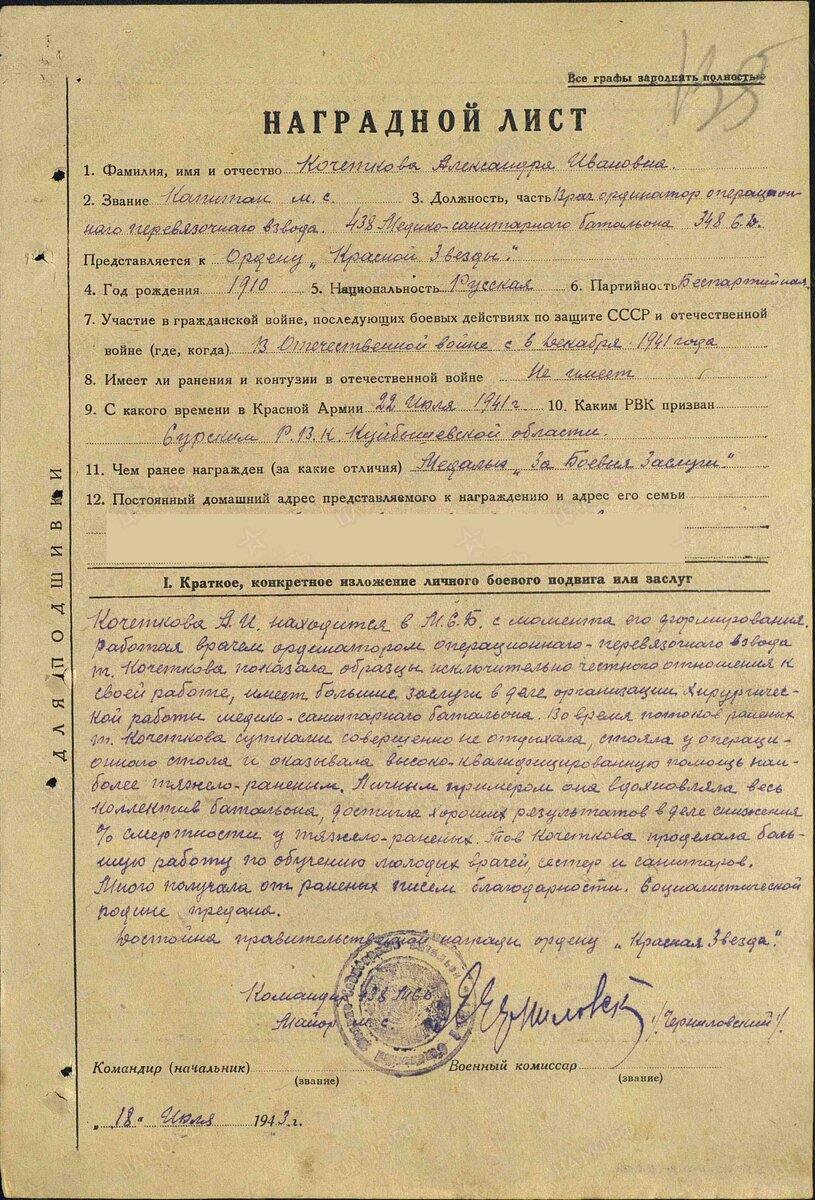 Все графы заполнять полностью
НАГРАДНОЙ ЛИСТ
1. Фамилия, имя и отчество Кочеткова Александра Ивановна.
2. Звание Капитан м.с. 3. Должность, часть Врач ординатор операцион-
наго перевязочнаго взвода. 438 Медико-санитарнаго батальона 348 С.Д.
Представляется к Ордену „Красной Звезды."
4. Год рождения 1910 5. Национальность Русская 6. Партийность Беспартийная.
7. Участие в гражданской войне, последующих боевых действиях по защите СССР и отечественной
войне (где, когда) В Отечественной войне с 6 Декабря 1941 года
8. Имеет ли ранения и контузии в отечественной войне Не имеет
9. С какого времени в Красной Армии 22 Июля 1941 г 10. Каким РВК призван
Сурским Р.В.К. Куйбышевской области.
11. Чем ранее награжден (за какие отличия) Медалью „За Боевыя Заслуги"
12. Постоянный домашний адрес представляемого к награждению и адрес его семьи
ДЛЯ ПОДШИВКИ
I. Краткое, конкретное изложение личного боевого подвига или заслуг
Кочеткова А.И. находится в М.С.Б. с момента его формирования.
Работая врачем ординатором операционнаго-перевязочнаго взвода
т. Кочеткова показала образцы исключительно честного отношения к
своей работе, имеет большие заслуги в деле организации хирургичес-
кой работы медико-санитарнаго батальона. Во время потоков раненых
т. Кочеткова сутками совершенно не отдыхала, стояла у операци-
оннаго стола и оказывала высоко-квалифицированную помощь наи-
более тяжело-раненым. Личным примером она вдохновляла весь
коллектив батальона, достигла хороших результатов в деле снижения
% смертности у тяжело-раненых. Тов Кочеткова проделала боль-
шую работу по обучению молодых врачей, сестер и санитаров.
Много получала от раненых писем благодарности. Социалистической
родине предана.
Достойна правительственной награды ордену „Красная Звезда".
Командир 438 МСБ
Майор м.с. /Черниловский/.
Командир (начальник) Военный комиссар
(звание) (звание)
„18" Июля 1943 г.